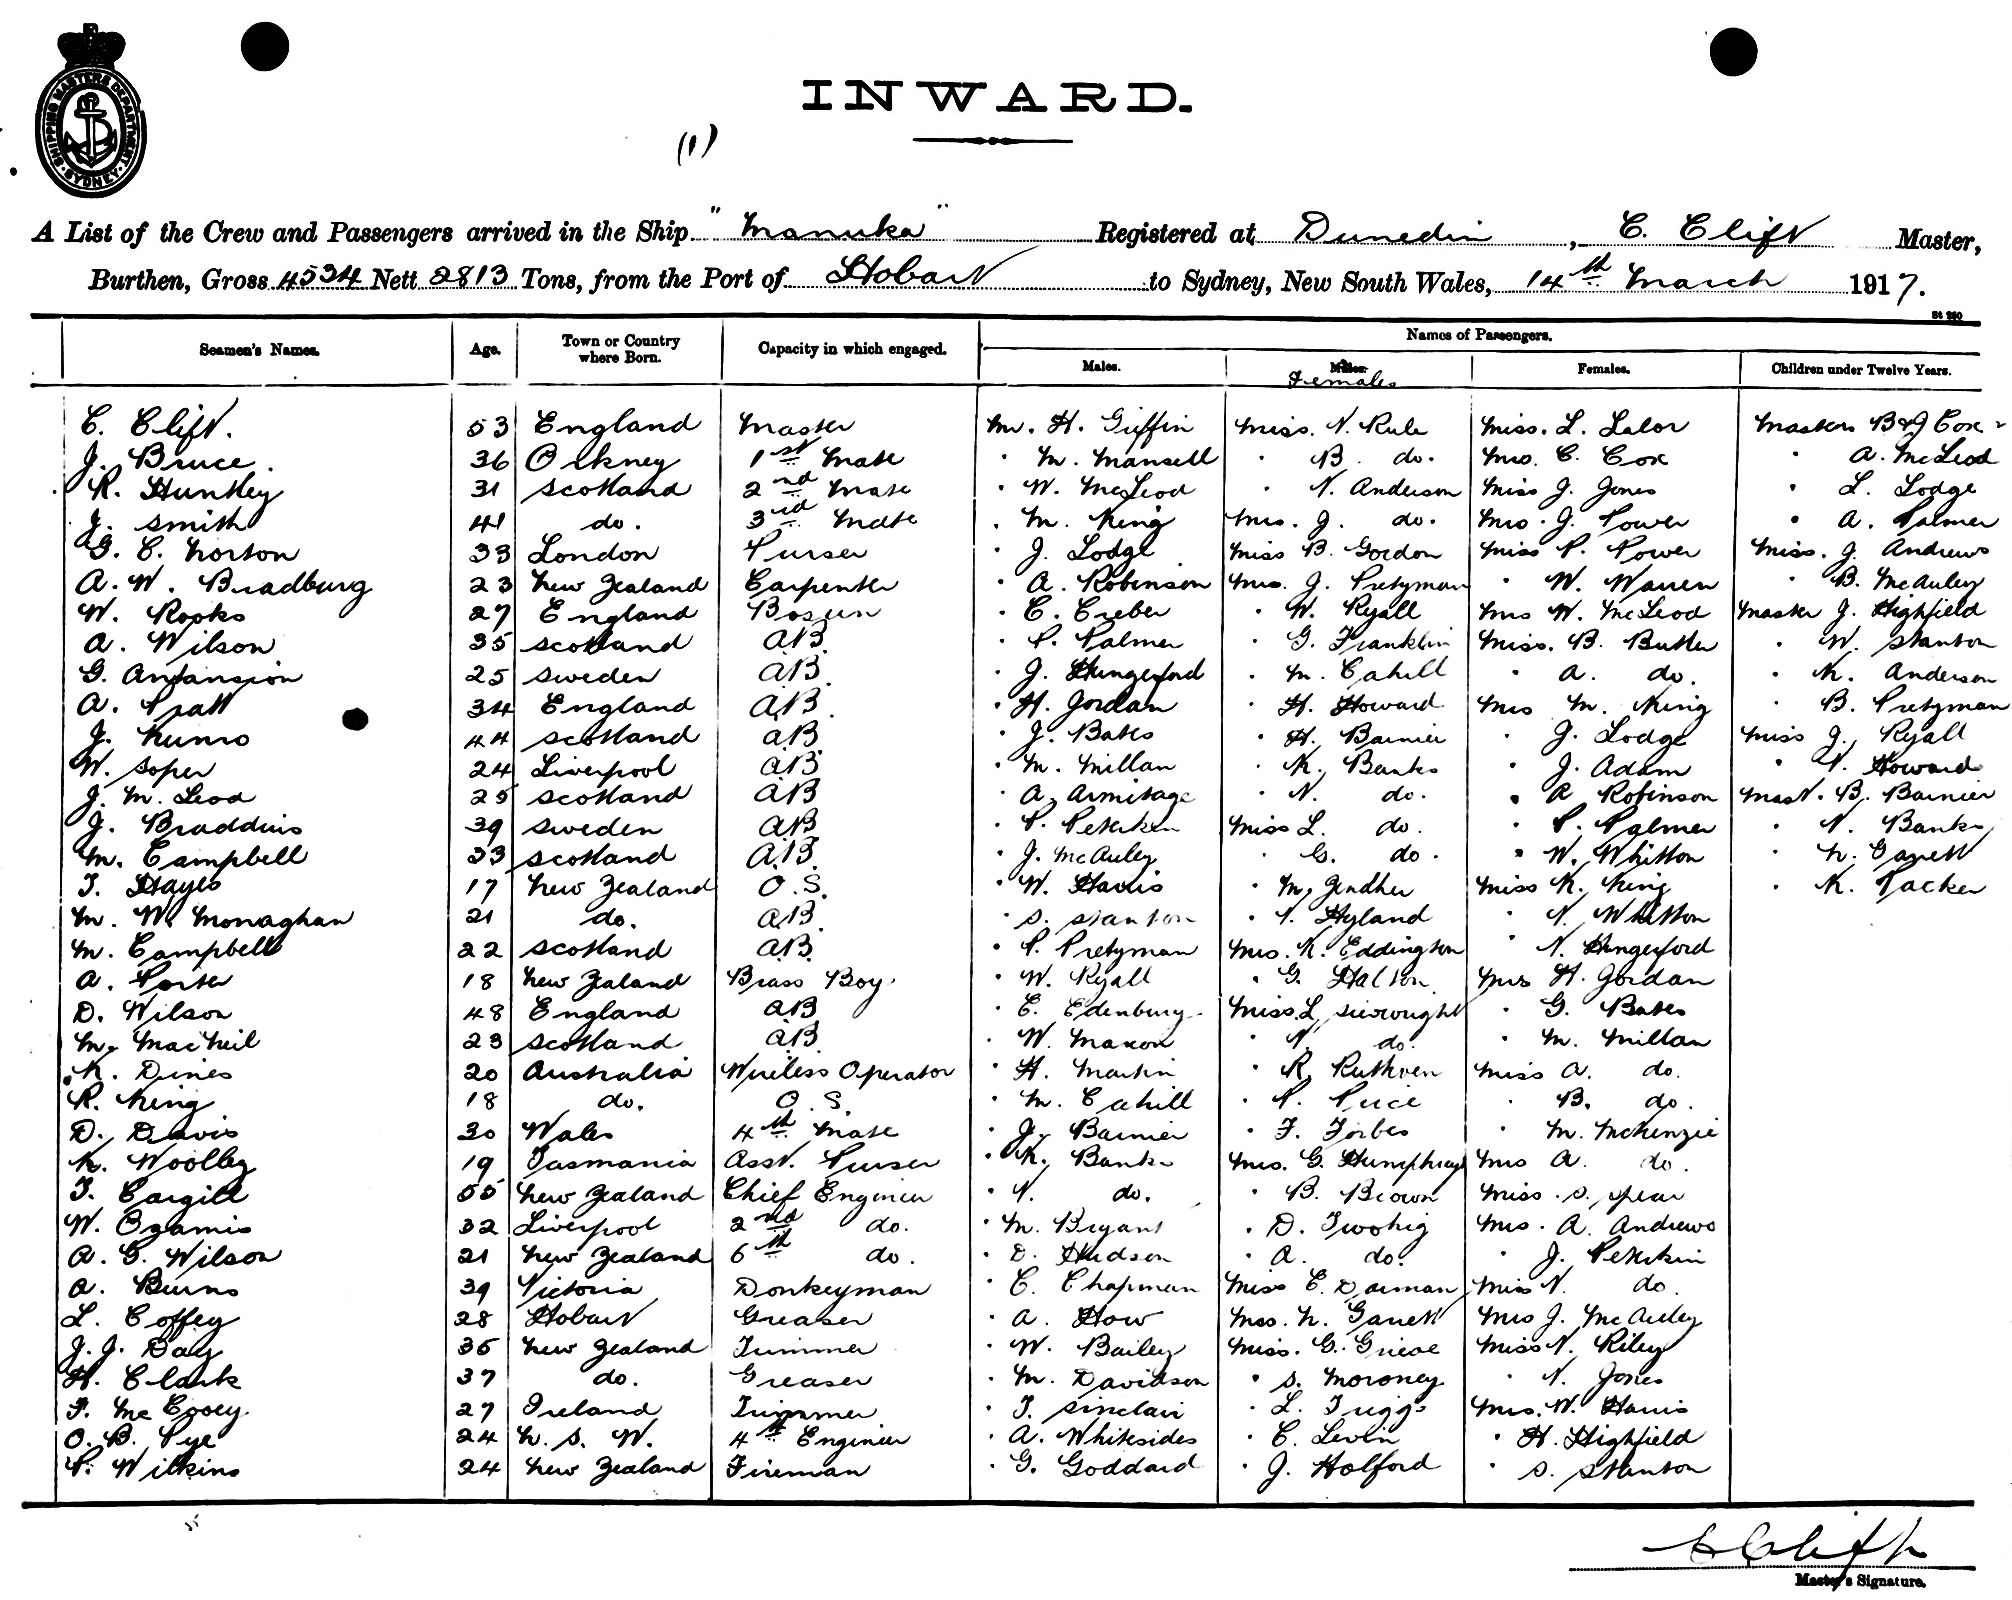 SHIPPING MASTERS DEPARTMENT
SYDNEY
INWARD.
(1)
A List of the Crew and Passengers arrived in the Ship "Manuka" Registered at Dunedin, C. Clift Master,
Burthen, Gross 4534 Nett 2813 Tons, from the Port of Hobart to Sydney, New South Wales, 14th March 1917.
St 280
Names of Passengers.
Seamen's Names. Age. Town or Country where Born. Capacity in which engaged. Males. Males. Females Females. Children under Twelve Years.
C. Clift. 53 England Master Mr. H. Giffin Miss. N. Rule Miss. L. Lalor Masters B & J Cox
J. Bruce. 36 Orkney 1st Mate " M. Mansell " B. do. Mrs. C. Cox " A. McLeod
R. Huntley 31 Scotland 2nd Mate " W. McLeod " N. Anderson Miss J. Jones " L. Lodge
J. Smith 41 do. 3rd Mate " M. King Mrs. J. do. Mrs. J. Power " A. Palmer
G. C. Norton 33 London Purser " J. Lodge Miss B. Gordon Miss P. Power Miss. J. Andrews
A. W. Bradburg 23 New Zealand Carpenter " A. Robinson Mrs. J. Pretyman " W. Warren " B. McAuley
W. Rooks 27 England Bosun " C. Creber " W. Ryall Mrs W. McLeod Master J. Highfield
A. Wilson 35 Scotland AB " P. Palmer " G. Franklin Miss. B. Butler " W. Stanton
G. 25 Sweden AB. " J. Hungerford " M. Cahill " A. do. " K. Anderson
A. Pratt 34 England AB. " H. Jordan " H. Howard Mrs M. King " B. Pretyman
J. Munro 44 Scotland AB. " J. Bates " H. Barnier " J. Lodge Miss J. Ryall
W. Soper 24 Liverpool AB " M. Millan " K. Banks " J. Adam " V. Howard
J. M. Leod 25 Scotland AB " A. Armitage " N. do. " A Robinson Mast. B. Barnier
J. Braddins 39 Sweden AB " P. Peterkin Miss L. do. " P. Palmer " V. Banks
M. Campbell 33 Scotland AB. " J. McAuley " G. do. " W. Whitton " N. Garrett
T. Hayes 17 New Zealand O.S. " W. Harris " M. Miss K. King " K. Packer
M. W. Monaghan 21 do. AB. " S. Stanton " V. Hyland " V. Whitton
M. Campbell 22 Scotland AB. " P. Pretyman Mrs. K. Eddington " N. Hungerford
A. Porter 18 New Zealand Brass Boy " W. Ryall " G. Halton Mrs H. Jordan
D. Wilson 48 England AB " C. Edenbury Miss. L. Sievwright " G. Bates
M. MacNeil 23 Scotland AB. " W. Maxon " V. do. " M. Millan
K. Dines 20 Australia Wireless Operator " H. Martin " R. Ruthven Miss A. do.
R. King 18 do. O.S. " M. Cahill " P. Price " B. do.
D. Davis 30 Wales 4th Mate " J. Barnier " F. Forbes " M. McKenzie
K. Woolley 19 Tasmania Asst. Purser " K. Banks Mrs. G. Humphrays Mrs A. do.
T. Cargill 55 New Zealand Chief Engineer " V. do. " B. Brown Miss. S. Spear
W. Ozamis 32 Liverpool 2nd do. " M. Bryant " D. Twohig Mrs. A. Andrews
A. G. Wilson 21 New Zealand 6th do. " D. Hudson " A. do. " J. Peterkin
A. Burns 39 Victoria Donkeyman " C. Chapman Miss C. Darman Miss N. do.
L. Coffey 28 Hobart Greaser " A. How Mrs. N. Garrett Mrs J. McAuley
J. J. Day 35 New Zealand Trimmer " W. Bailey Miss. G. Grieve Miss N. Riley
H. Clark 37 do. Greaser " M. Davidson " S. Moroney " N. Jones
F. McCooey 27 Ireland Trimmer " T. Sinclair " L. Triggs Mrs. W. Harris
O. B. Pye 24 N. S. W. 4th Engineer " A. Whitesides " C. Levin " H. Highfield
P. Wilkins 24 New Zealand Fireman " G. Goddard " J. Holford " S. Stanton
C Clift
Master's Signature.